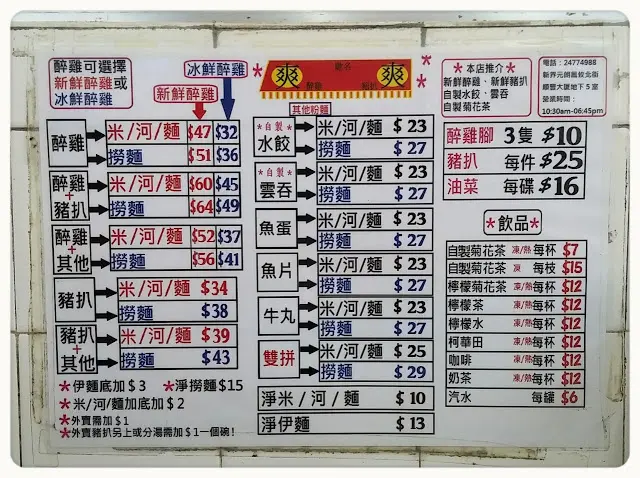 醉雞可選擇
新鮮醉雞或
冰鮮醉雞
冰鮮醉雞
新鮮醉雞
醉雞
米/河/麵 $47 $32
撈麵 $51 $36
醉雞+豬扒
米/河/麵 $60 $45
撈麵 $64 $49
醉雞+其他
米/河/麵 $52 $37
撈麵 $56 $41
豬扒
米/河/麵 $34
撈麵 $38
豬扒+其他
米/河/麵 $39
撈麵 $43
*伊麵底加$3 *淨撈麵$15
*米/河/麵加底加$2
*外賣需加$1
*外賣豬扒另上或分湯需加$1一個碗!
爽 爽
其他粉麵
*自製*
水餃
米/河/麵 $23
撈麵 $27
*自製*
雲吞
米/河/麵 $23
撈麵 $27
魚蛋
米/河/麵 $23
撈麵 $27
魚片
米/河/麵 $23
撈麵 $27
牛丸
米/河/麵 $23
撈麵 $27
雙拼
米/河/麵 $25
撈麵 $29
淨米/河/麵 $10
淨伊麵 $13
*本店推介*
新鮮醉雞、新鮮豬扒
自製水餃、雲吞
自製菊花茶
電話:24774988
新界元朗鳳攸北街
順豐大廈地下5室
營業時間:
10:30am-06:45pm
醉雞腳 3隻 $10
豬扒 每件 $25
油菜 每碟 $16
*飲品*
自製菊花茶 凍/熱 每杯 $7
自製菊花茶 凍 每枝 $15
檸檬菊花茶 凍/熱 每杯 $12
檸檬茶 凍/熱 每杯 $12
檸檬水 凍/熱 每杯 $12
柯華田 凍/熱 每杯 $12
咖啡 凍/熱 每杯 $12
奶茶 凍/熱 每杯 $12
汽水 每罐 $6